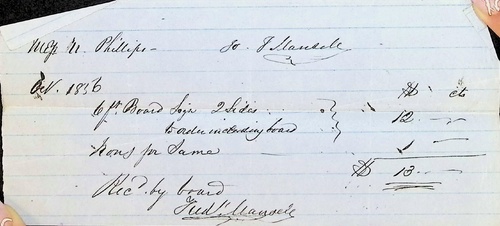 N. Phillips - To F Mansell
Oct. 1836 $ cts
6 ft. Board Sign 2 Sides 12 -
to order including board
Irons for Same 1 -
$ 13 -
Rec'd. by board
Fred'k. Mansell